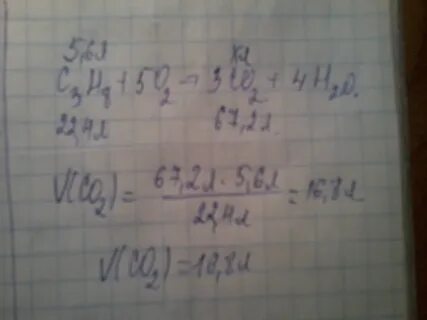 5,6л хл
C₃H₈ + 5O₂ → 3CO₂ + 4H₂O.
22,4л 67,2л
V(CO₂) = 67,2л · 5,6л / 22,4л = 16,8л
V(CO₂) = 16,8л